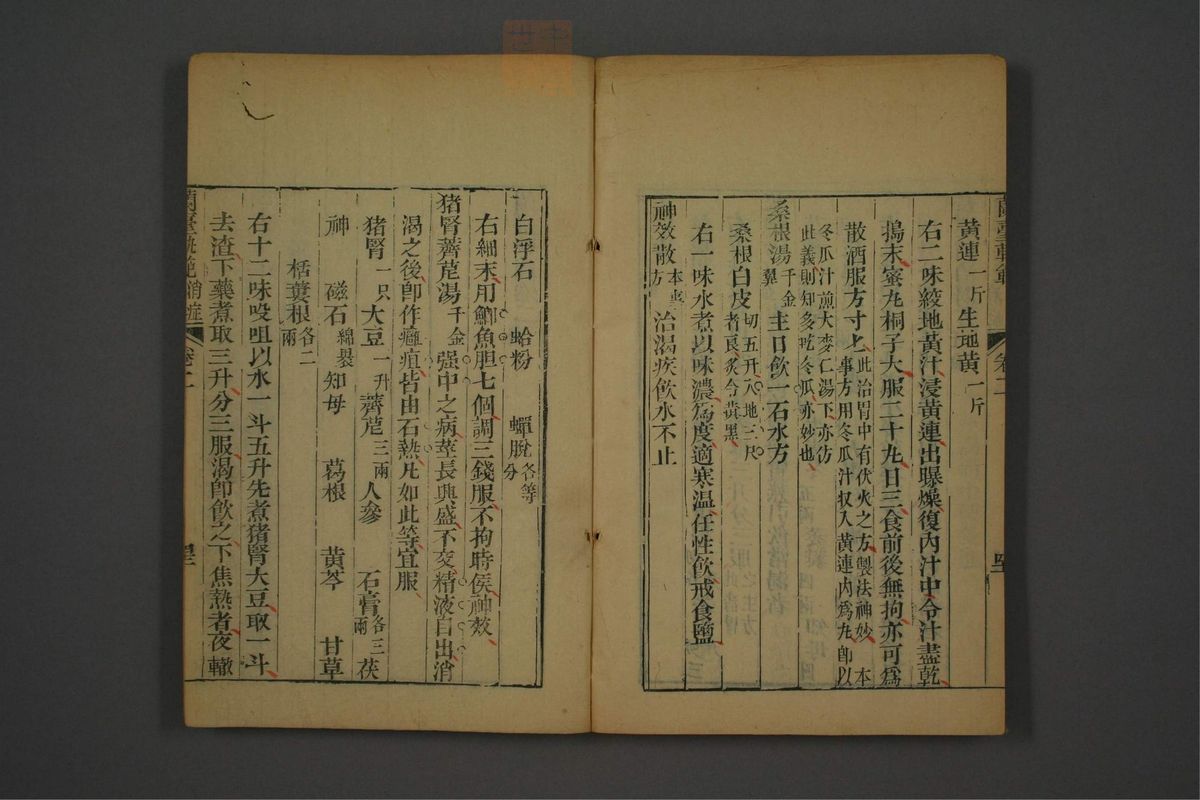 黃連一斤生地黃一斤
右二味絞地黃汁浸黃連出曝燥復內汁中令汁盡乾
搗末蜜丸桐子大服二十丸日三食前後無拘亦可為
散酒服方寸匕此治胃中有伏火之方製法神妙 本事方用冬瓜汁收入黃連內為丸即以
冬瓜汁煎大麥仁湯下亦仿此義則知多吃冬瓜亦妙也
桑根湯千金翼 主日飲一石水方
桑根白皮切五升入地三尺者良炙令黃黑
右一味水煮以味濃為度適寒温任性飲戒食鹽
神效散本事方 治渴疾飲水不止
卷二
白浮石 蛤粉 蟬脫各等分
右細末用鯽魚胆七個調三錢服不拘時侯神效
猪腎薺苨湯千金 强中之病莖長興盛不交精液自出消
渴之後卽作癰疽皆由石熱凡如此等宜服
猪腎一只 大豆一升 薺苨三兩 人參 石膏各三兩 茯
神 磁石綿裹 知母 葛根 黃芩 甘草
栝蔞根各二兩
右十二味㕮咀以水一斗五升先煮猪腎大豆取一斗
去渣下藥煮取三升分三服渴卽飲之下焦熱者夜輙
蘭臺軌範 消症 卷二